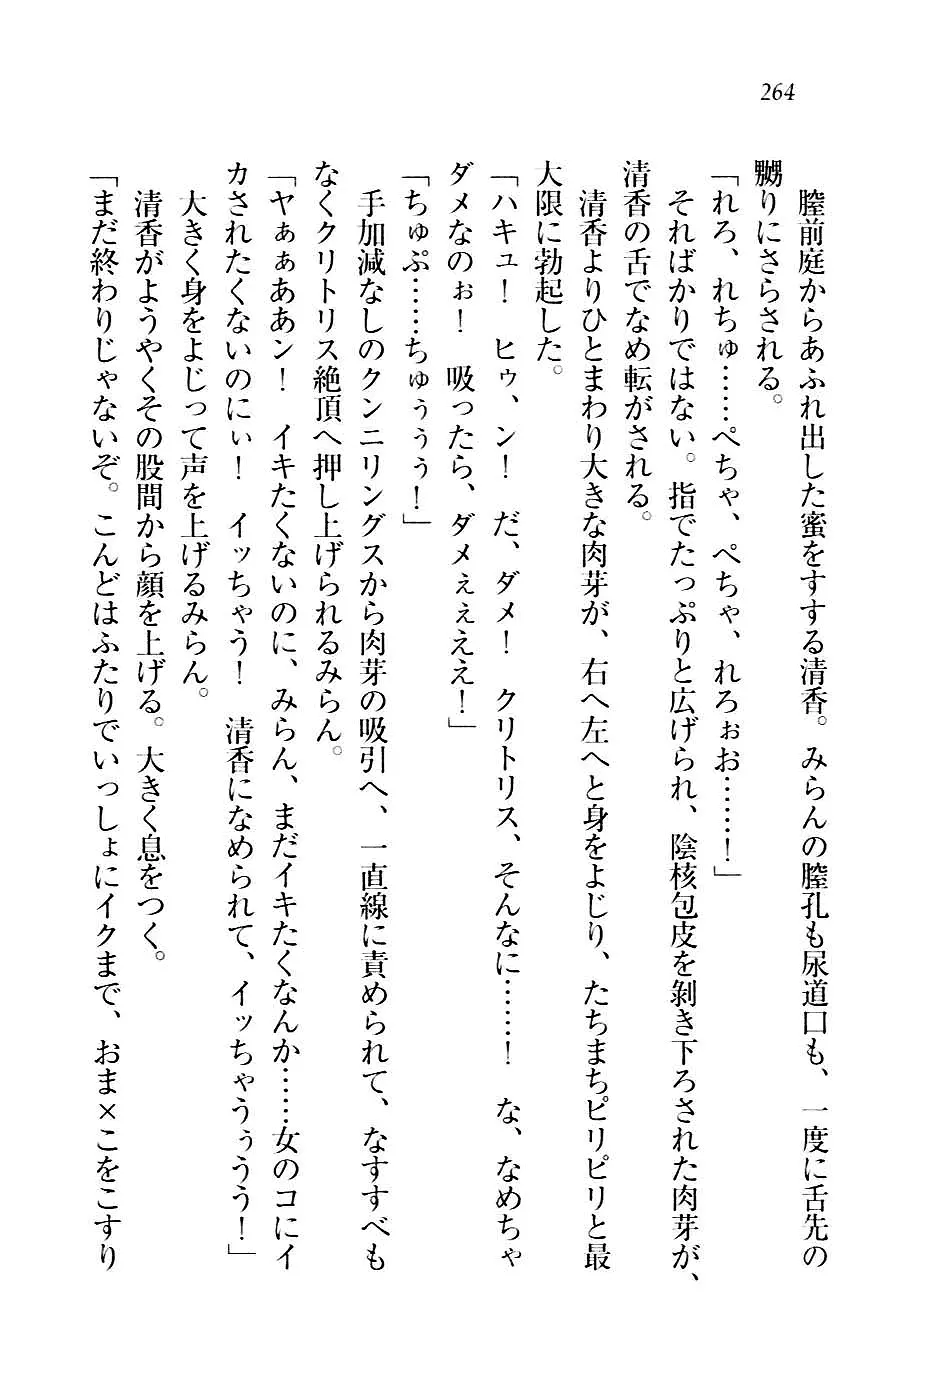 264
膣前庭からあふれ出した蜜をすする清香。みらんの膣孔も尿道口も、一度に舌先の
嬲りにさらされる。
「れろ、れちゅ……ぺちゃ、ぺちゃ、れろぉお……！」
そればかりではない。指でたっぷりと広げられ、陰核包皮を剝き下ろされた肉芽が、
清香の舌でなめ転がされる。
清香よりひとまわり大きな肉芽が、右へ左へと身をよじり、たちまちピリピリと最
大限に勃起した。
「ハキュ！　ヒゥ、ン！　だ、ダメ！　クリトリス、そんなに……！　な、なめちゃ
ダメなのぉ！　吸ったら、ダメぇぇええ！」
「ちゅぷ……ちゅぅぅぅ！」
手加減なしのクンニリングスから肉芽の吸引へ、一直線に責められて、なすすべも
なくクリトリス絶頂へ押し上げられるみらん。
「ヤぁぁああン！　イキたくないのに、みらん、まだイキたくなんか……女のコにイ
カされたくないのにぃ！　イッちゃう！　清香になめられて、イッちゃうぅうう！」
大きく身をよじって声を上げるみらん。
清香がようやくその股間から顔を上げる。大きく息をつく。
「まだ終わりじゃないぞ。こんどはふたりでいっしょにイクまで、おま×こをこすり